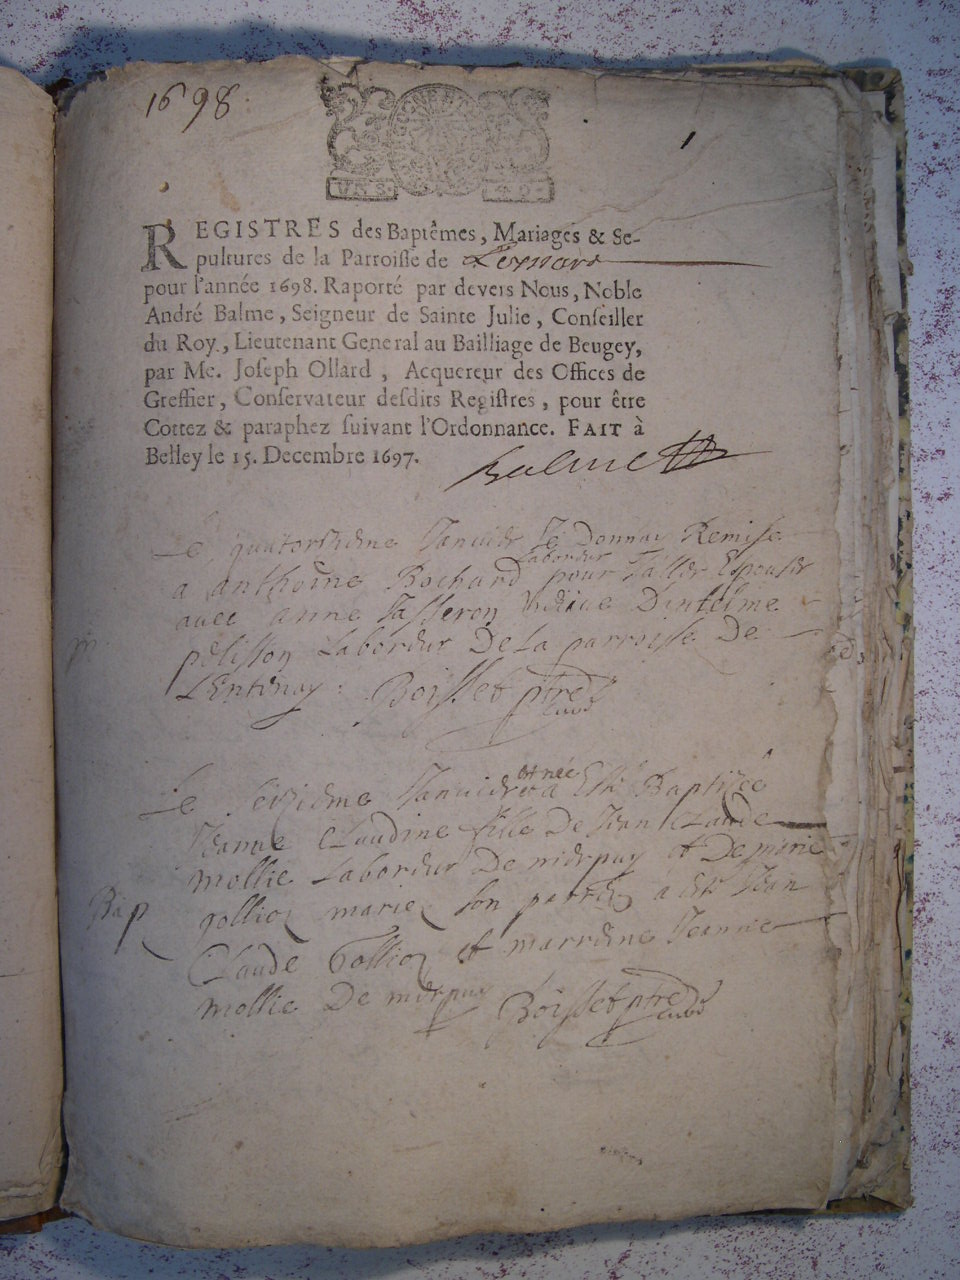 1698
1
UN S. 4 D.
REGISTRES des Baptêmes, Mariages & Se-
pultures de la Parroisse de Leyssard
pour l'année 1698. Raporté par devers Nous, Noble
André Balme, Seigneur de Sainte Julie, Conseiller
du Roy, Lieutenant General au Bailliage de Beugey,
par Me. Joseph Ollard, Acquereur des Offices de
Greffier, Conservateur desdits Registres, pour être
Cottez & paraphez suivant l'Ordonnance. FAIT à
Belley le 15. Decembre 1697.
Balme
Le quatorzieme Janvier Je Donnay Remise
laboreur
a anthoine Bochard pour aller Espouser
avec anne Tasseron
pelisson Laboreur De La parroisse De
Lentenay : Boisset ptre
curé
Le seizieme Janvier et née Est Baptisée
Jeanne Claudine fille De Jean Claude
mollie Laboreur De mierpuy et De marie
Bap
gollion mariez son parrin a esté Jean
Claude Gollion et marrine Jeanne
mollie De mierpuy Boisset ptre
curé